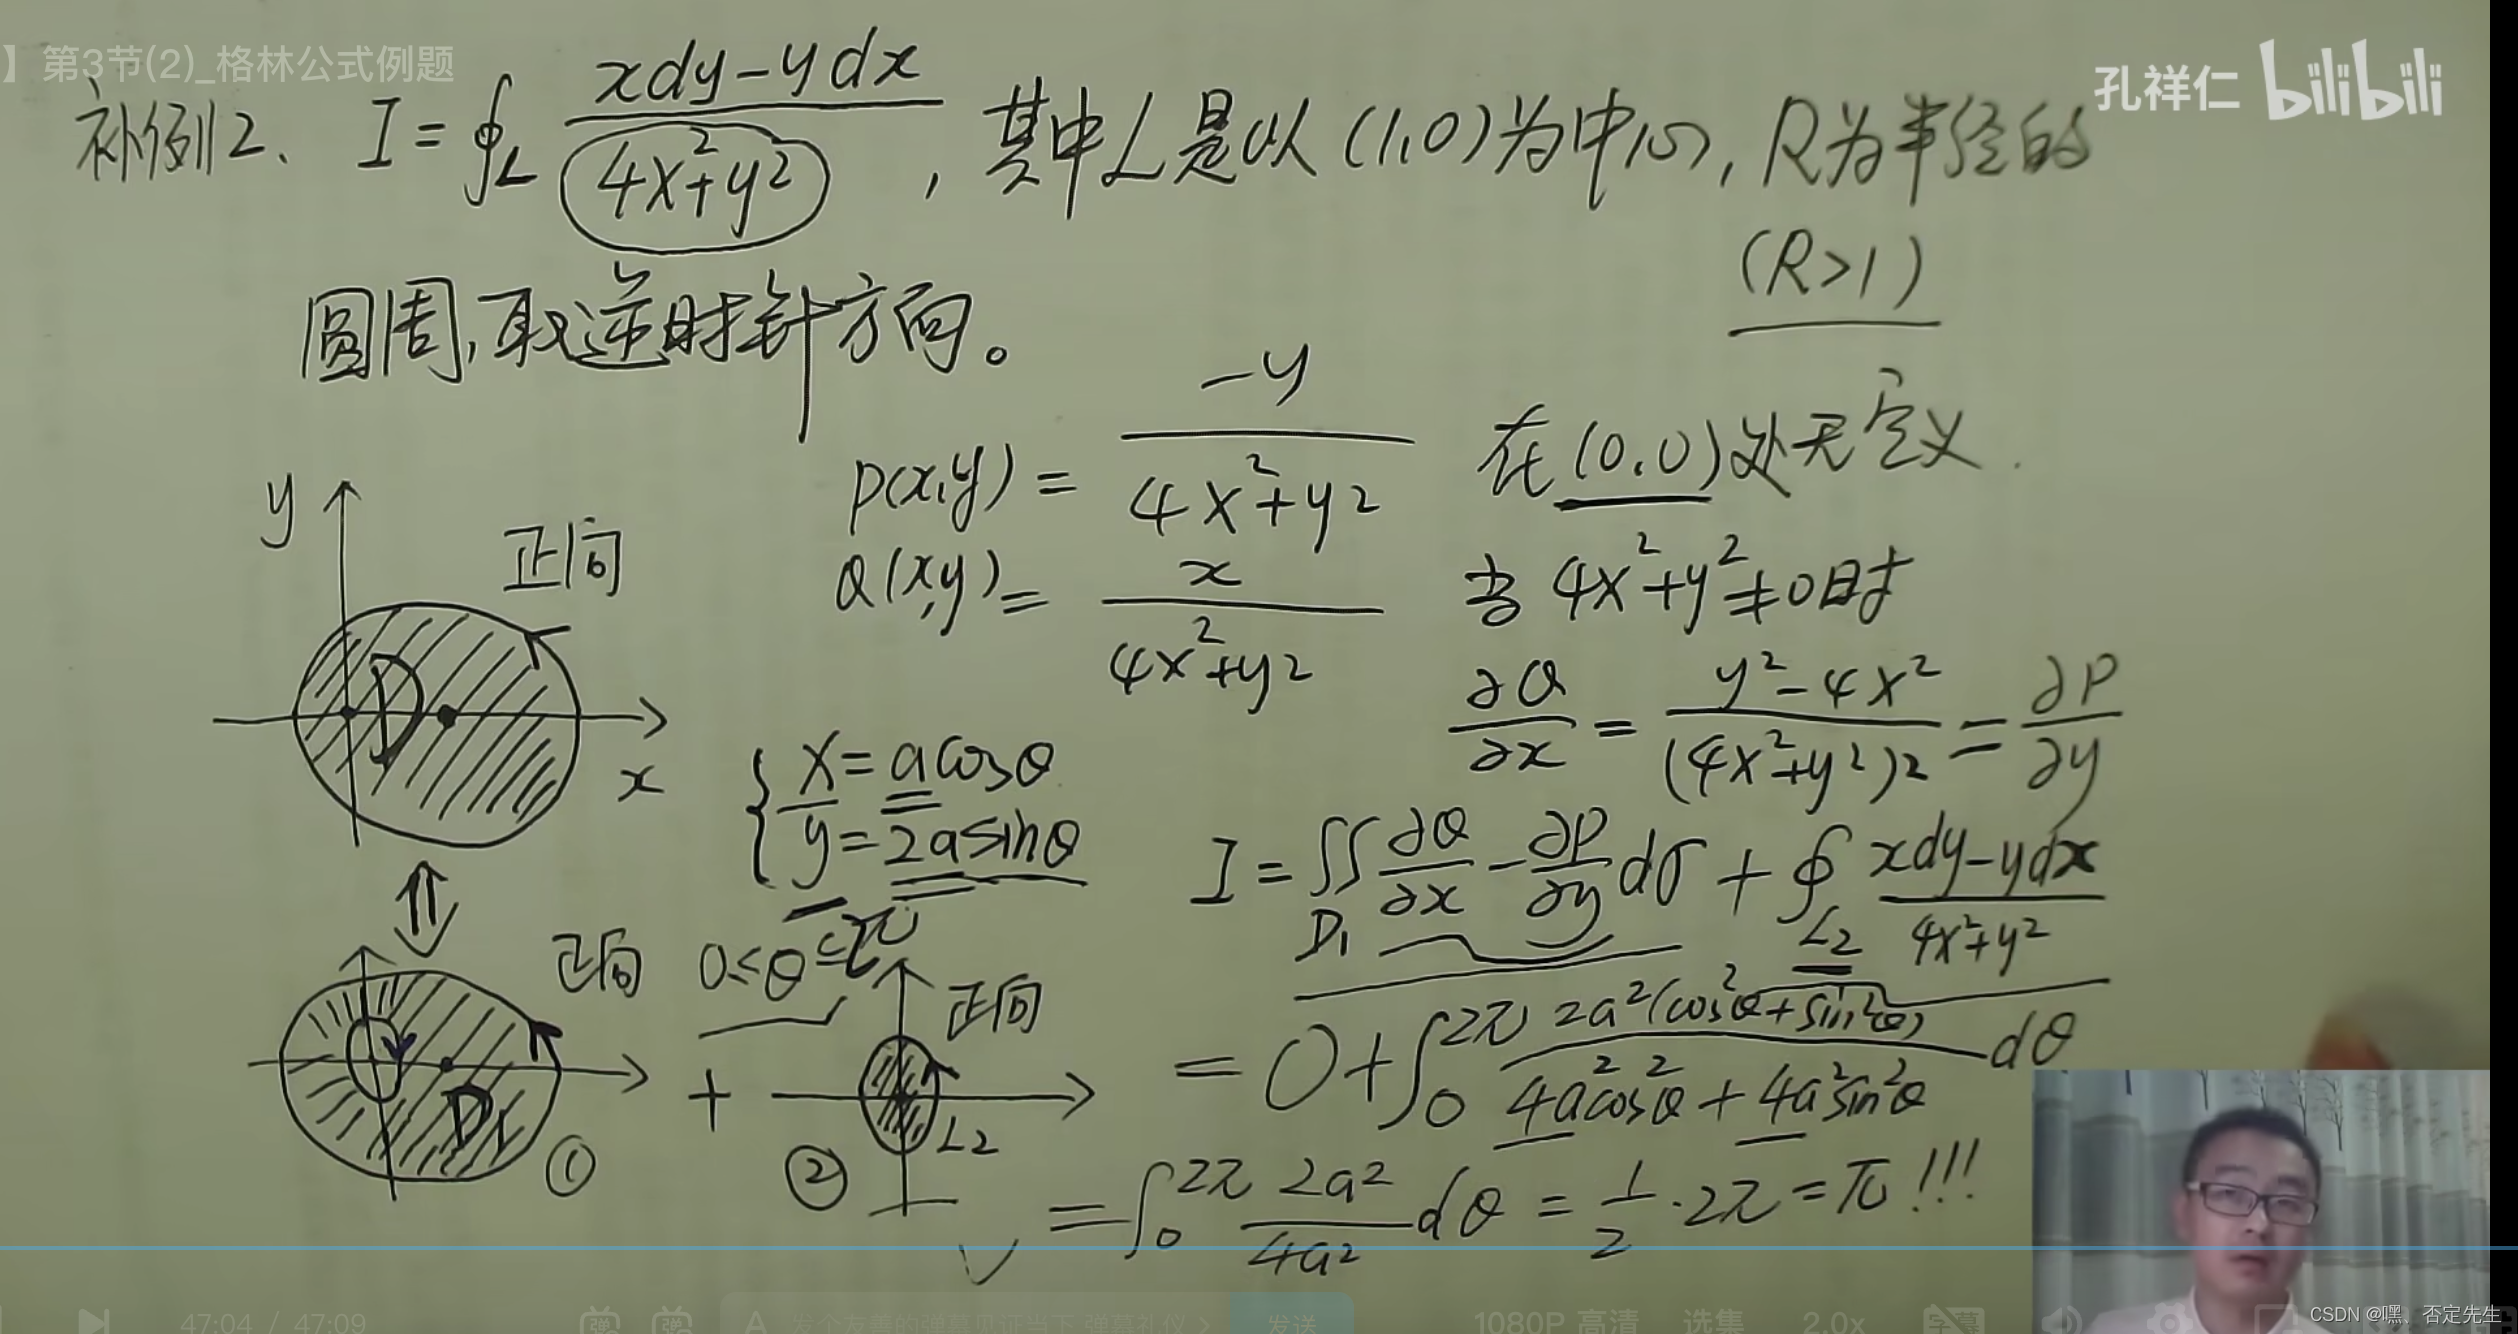 】第3节(2)_格林公式例题
孔祥仁 bilibili
补例2、 I = ∮_L (xdy-ydx)/(4x²+y²) , 其中L是以(1,0)为中心, R为半径的
(R>1)
圆周, 取逆时针方向。
P(x,y) = -y/(4x²+y²) 在(0,0)处无定义.
Q(x,y) = x/(4x²+y²) 当 4x²+y²≠0时
∂Q/∂x = (y²-4x²)/(4x²+y²)² = ∂P/∂y
y 正向
D
x
{ x = a cosθ
y = 2a sinθ
0≤θ≤2π
I = ∬_D₁ ∂Q/∂x - ∂P/∂y dσ + ∮_L₂ (xdy-ydx)/(4x²+y²)
= 0 + ∫₀^2π 2a²(cos²θ+sin²θ)/(4a²cos²θ+4a²sin²θ) dθ
= ∫₀^2π 2a²/4a² dθ = 1/2 · 2π = π !!!
⇕
正向
D₁ ①
+
正向
L₂
②
47:04 / 47:09 弹 弹 A 发个友善的弹幕见证当下 弹幕礼仪 > 发送 1080P 高清 选集 2.0x 字幕
CSDN @嘿、否定先生